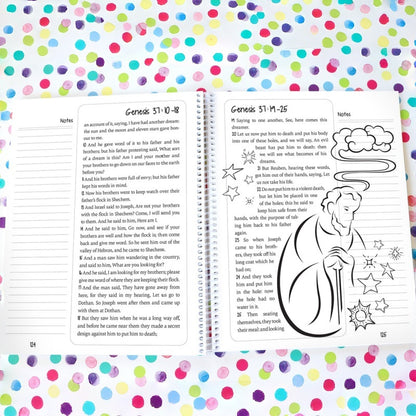 Genesis 37:10-18
Notes
an account of it, saying, I have had another dream:
the sun and the moon and eleven stars gave hon-
our to me.
10 And he gave word of it to his father and his
brothers; but his father protesting said, What sort
of a dream is this? am I and your mother and
your brothers to go down on our faces to the earth
before you?
11 And his brothers were full of envy; but his father
kept his words in mind.
12 Now his brothers went to keep watch over their
father's flock in Shechem.
13 And Israel said to Joseph, Are not your brothers
with the flock in Shechem? Come, I will send you
to them. And he said to him, Here am I.
14 And he said to him, Go now, and see if your
brothers are well and how the flock is; then come
back and give me word. So he sent him out of the
valley of Hebron, and he came to Shechem.
15 And a man saw him wandering in the country,
and said to him, What are you looking for?
16 And he said, I am looking for my brothers; please
give me word of where they are keeping their flock.
17 And the man said, They have gone away from
here, for they said in my hearing, Let us go to
Dothan. So Joseph went after them and came up
with them at Dothan.
18 But they saw him when he was a long way off,
and before he came near them they made a secret
design against him to put him to death;
124
Genesis 37:19-25
Notes
19 Saying to one another, See, here comes this
dreamer.
20 Let us now put him to death and put his body
into one of these holes, and we will say, An evil
beast has put him to death: then
we will see what becomes of his
dreams.
21 But Reuben, hearing these words,
got him out of their hands, saying, Let
us not take his life.
22 Do not put him to a violent death,
but let him be placed in one
of the holes; this he said to
keep him safe from their
hands, with the purpose of tak-
ing him back to his father
again.
23 So when Joseph
came to his broth-
ers, they took off his
long coat which he
had on;
24 And they took
him and put him
in the hole: now
the hole had no
water in it.
25 Then seating
themselves, they took
their meal; and looking
125